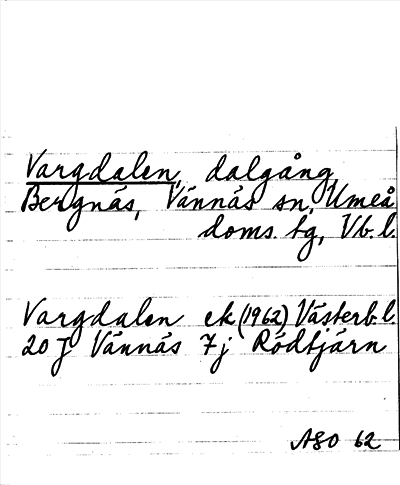 Vargdalen, dalgång,
Bergnäs, Vännäs sn, Umeå
doms. tg, Vb. l.
Vargdalen ek (1962) Västerb.l.
20 J Vännäs 7j Rödtjärn
ASO 62